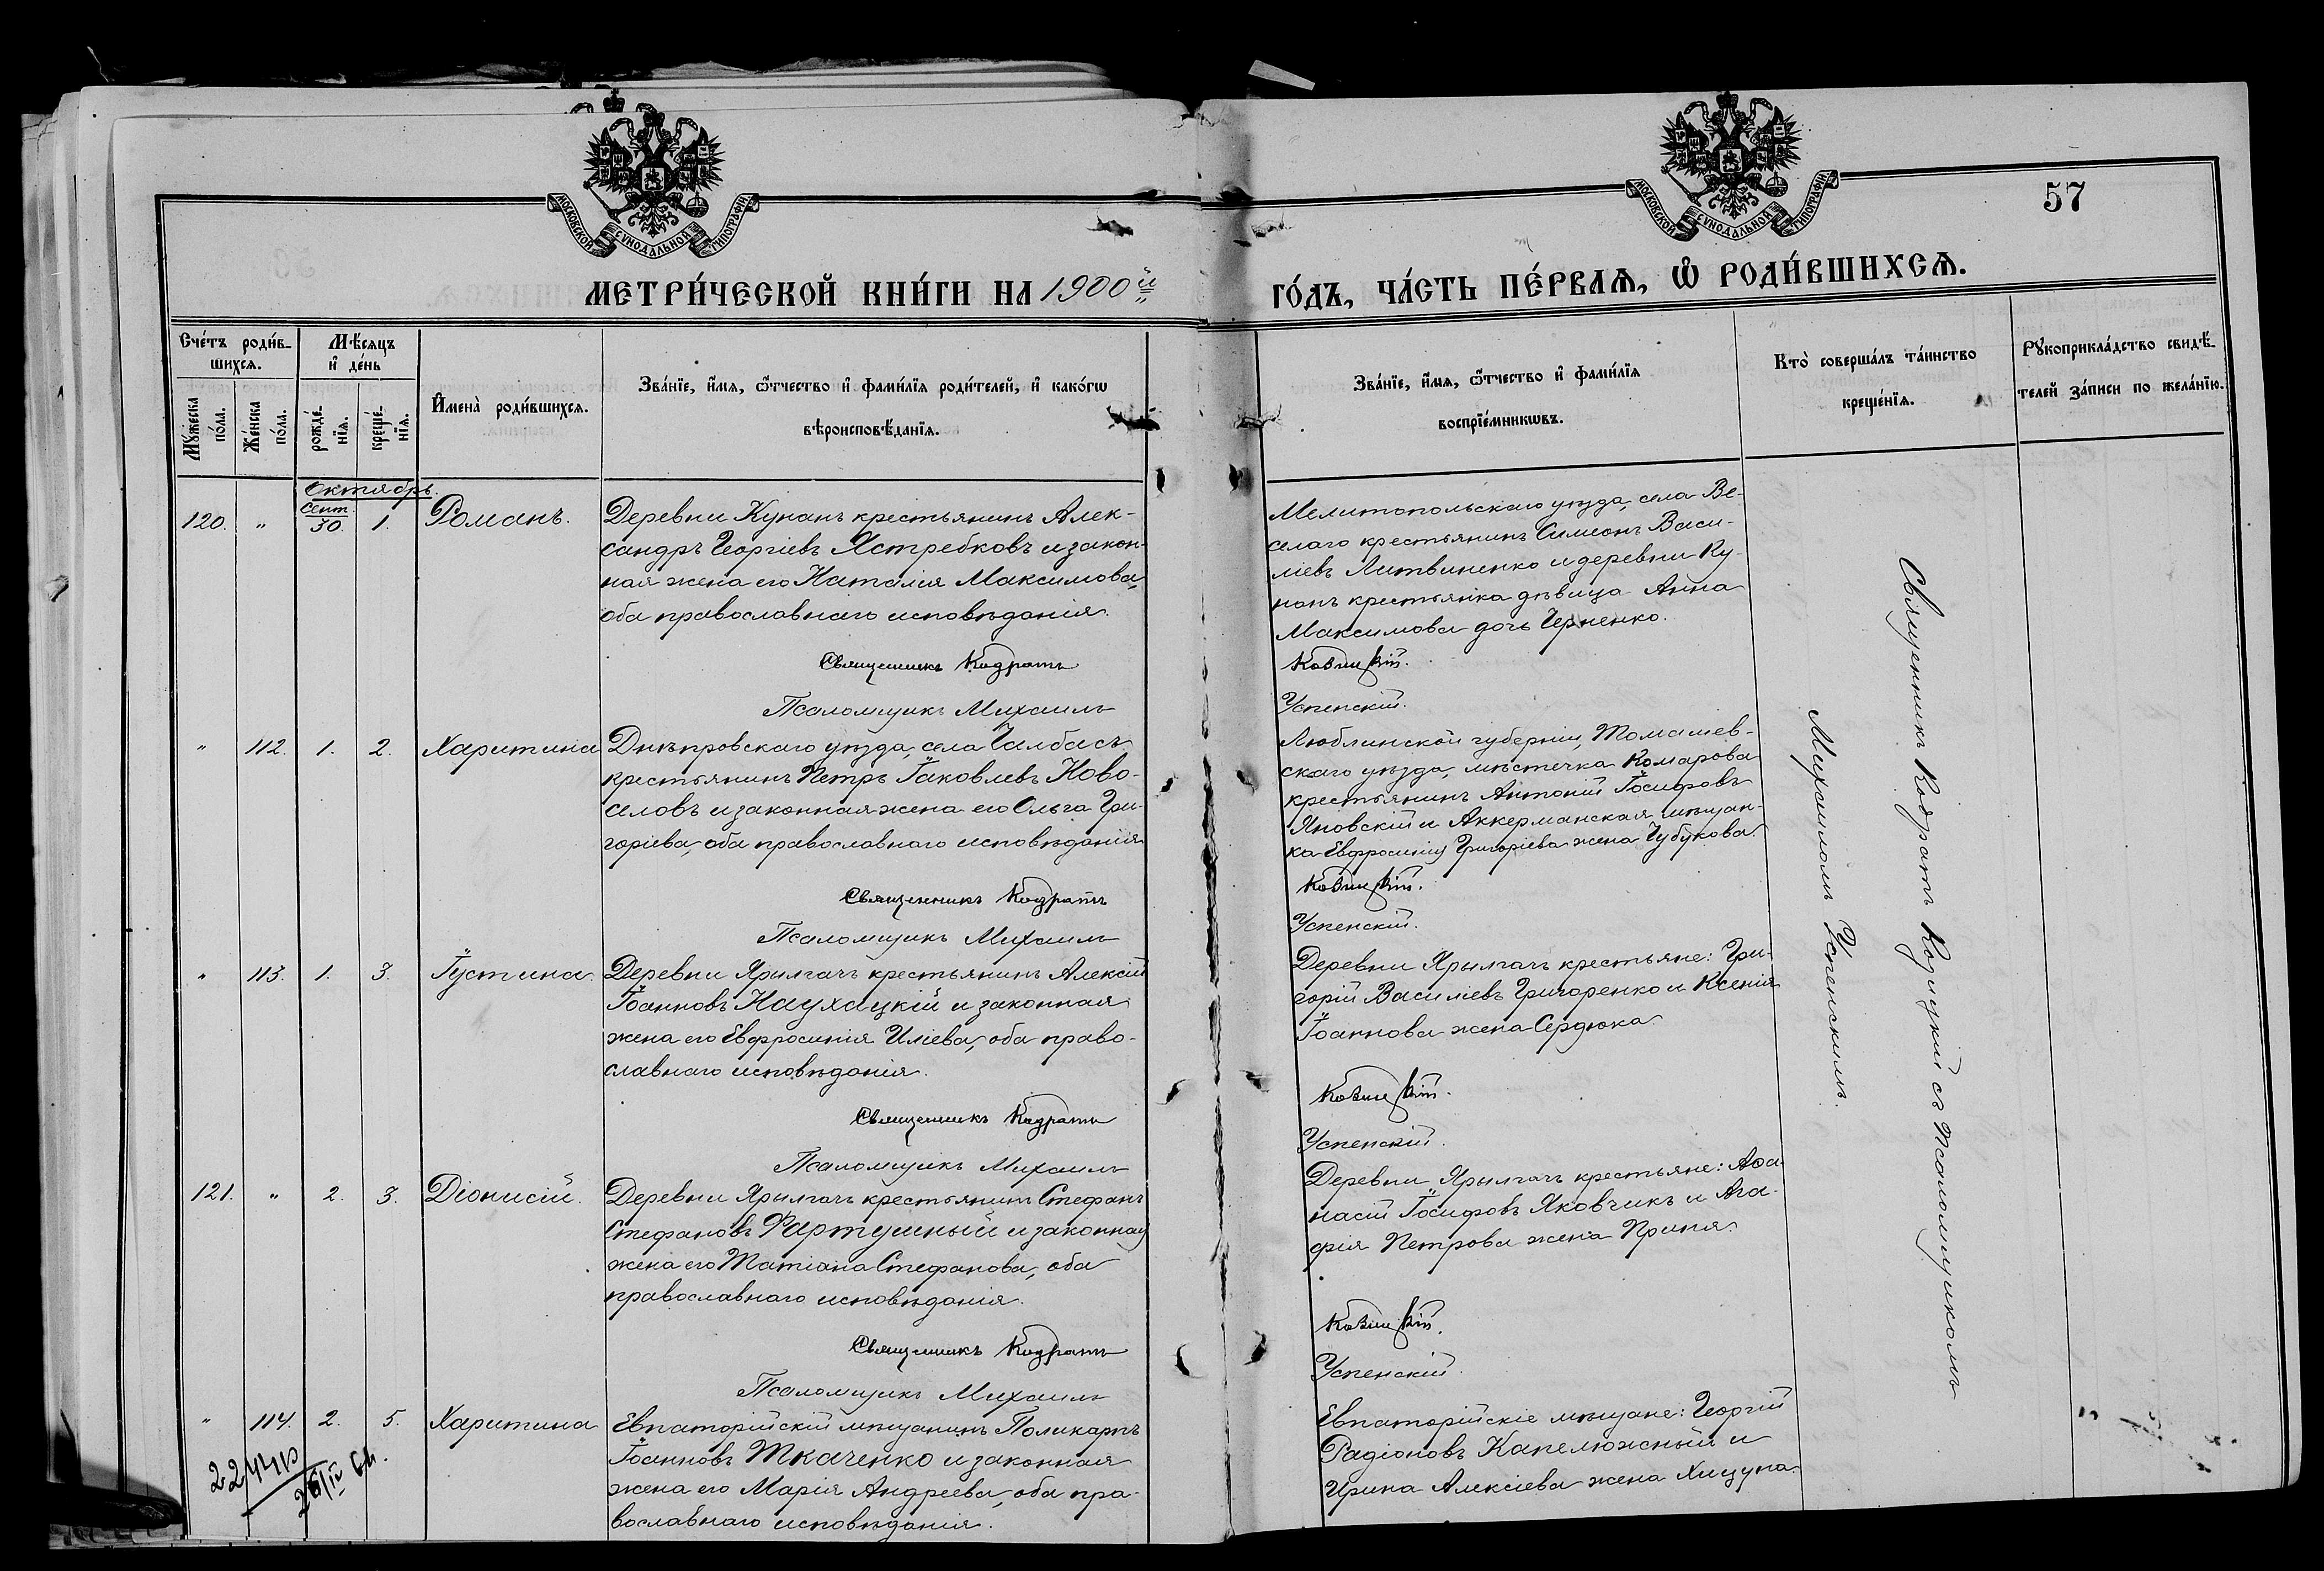 МОСКОВСКОЙ СѴНОДАЛЬНОЙ ТИПОГРАФІИ
МОСКОВСКОЙ СѴНОДАЛЬНОЙ ТИПОГРАФІИ
57
МЕТРИ́ЧЕСКОЙ КНИ́ГИ НА 1900й
ГО́ДЪ, ЧА́СТЬ ПЕ́РВАѦ, Ѡ҆ РОДИ́ВШИХСѦ.
Сче́тъ роди́в-
шихсѧ.
Мѣ́сѧцъ
и҆ де́нь
Мꙋ́жеска
по́ла.
Же́нска
по́ла.
рожде́-
нїѧ.
креще́-
нїѧ.
И҆мена̀ роди́вшихсѧ.
Зва́нїе, и҆́мѧ, ѻ҆́тчество и҆ фами́лїѧ роди́телей, и҆ како́гѡ
вѣроисповѣ́данїѧ.
Зва́нїе, и҆́мѧ, ѻ҆́тчество и҆ фами́лїѧ
воспрїе́мникѡвъ.
Кто̀ соверша́лъ та́инство
креще́нїѧ.
Рꙋкоприкла́дство свидѣ́-
телей за́писи по жела́нїю.
Октябрь.
120. " Сент. 30. 1. Романъ.
Деревни Кунанъ крестьянинъ Алек-
сандръ Георгіевъ Ястребковъ и закон-
ная жена его Наталія Максимова,
оба православнаго исповѣданія.
Священникъ Кодратъ
Псаломщикъ Михаилъ
Мелитопольскаго уѣзда, села Ве-
селаго крестьянинъ Симеонъ Васи-
ліевъ Литвиненко и деревни Ку-
нанъ крестьянка дѣвица Анна
Максимова дочь Черненко.
Козицкій.
Успенскій.
" 112. 1. 2. Харитина
Днѣпровскаго уѣзда, села Чалбасъ,
крестьянинъ Петръ Іаковлевъ Ново-
селовъ и законная жена его Ольга Гри-
горіева, оба православнаго исповѣданія
Священникъ Кодратъ
Псаломщикъ Михаилъ
Люблинской губерніи, Томашев-
скаго уѣзда, мѣстечка Комарова
крестьянинъ Антоній Іосифовъ
Яновскій и Аккерманская мѣщан-
ка Евфросинія Григоріева жена Чубукова.
Козицкій.
Успенскій.
" 113. 1. 3. Іустина.
Деревни Ярылгачъ крестьянинъ Алексій
Іоанновъ Наухацкій и законная
жена его Евфросинія Иліева, оба право-
славнаго исповѣданія.
Священникъ Кодратъ
Псаломщикъ Михаилъ
Деревни Ярылгачъ крестьяне: Гри-
горій Василіевъ Григоренко и Ксенія
Іоаннова жена Сердюка.
Козицкій.
Успенскій.
121. " 2. 3. Діонисій.
Деревни Ярылгачъ крестьянинъ Стефанъ
Стефановъ Фартушный и законная
жена его Татіана Стефанова, оба
православнаго исповѣданія.
Священникъ Кодратъ
Псаломщикъ Михаилъ
Деревни Ярылгачъ крестьяне: Аѳа-
насій Іосифовъ Яковчикъ и Ага-
фія Петрова жена
Козицкій.
Успенскій.
" 114. 2. 5. Харитина
Евпаторійскій мѣщанинъ Поликарпъ
Іоанновъ Ткаченко и законная
жена его Марія Андреева, оба пра-
вославнаго исповѣданія.
Евпаторійскіе мѣщане: Георгій
Радіоновъ Капелюжный и
Ирина Алексіева жена Хицуна.
Священникъ Кодратъ Козицкій съ псаломщикомъ
Михаиломъ Успенскимъ.